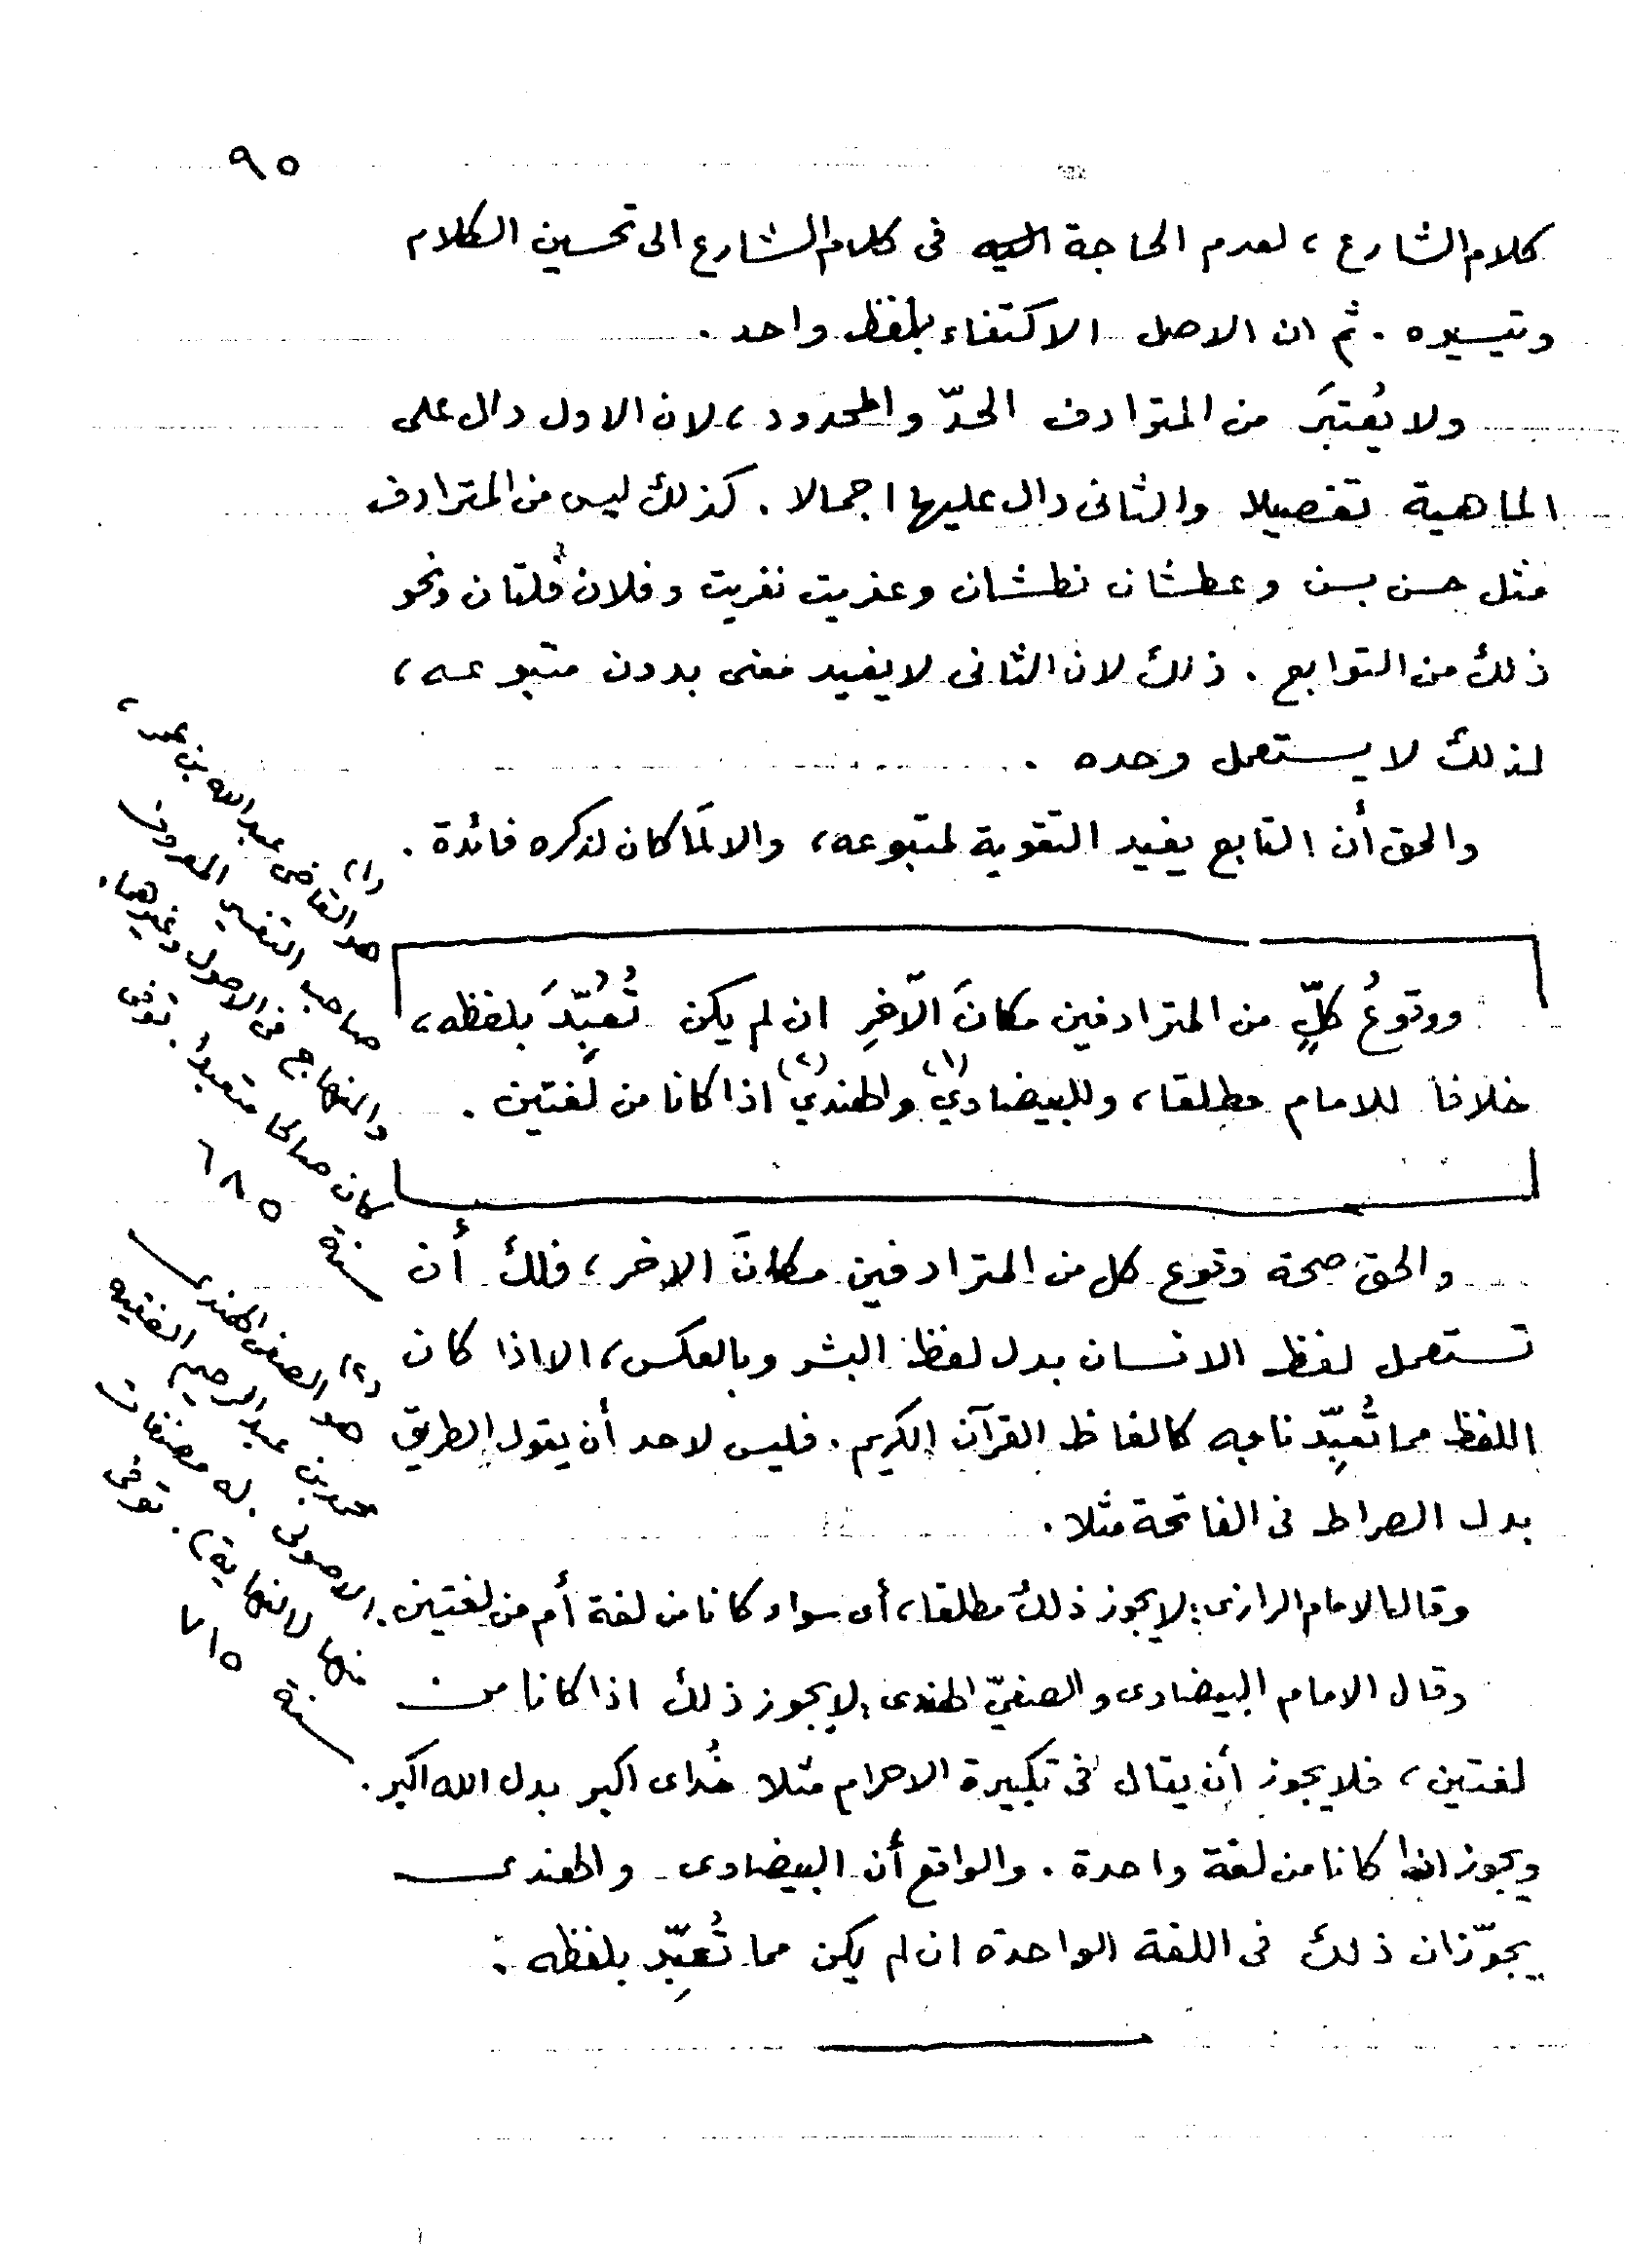 ٩٥
كلام الشارع، لعدم الحاجة اليه فى كلام الشارع الى تحسين الكلام
وتيسيره. ثم ان الاصل الاكتفاء بلفظ واحد.
ولا يُعتبَر من المترادف الحدّ والمحدود، لان الاول دال على
الماهية تفصيلا والثانى دال عليها اجمالا. كذلك ليس من المترادف
مثل حسن بسن وعطشان نطشان وعفريت نفريت وفلان فُلتان ونحو
ذلك من التوابع. ذلك لان الثانى لا يفيد معنى بدون متبوعه،
لذلك لا يستعمل وحده.
والحق أن التابع يفيد التقوية لمتبوعه، والا لَما كان لذكره فائدة.
ووقوعُ كلٍّ من المترادفين مكانَ الآخرِ ان لم يكن تُعُبِّدَ بلفظه،
خلافا للامام مطلقا، وللبيضاويّ (١) والهنديّ (٢) اذا كانا من لغتين.
والحق صحة وقوع كل من المترادفين مكانَ الاخر، فلك أن
تستعمل لفظ الانسان بدل لفظ البشر وبالعكس، الا اذا كان
اللفظ مما تُعُبِّدنا به كالفاظ القرآن الكريم. فليس لاحد أن يقول الطريق
بدل الصراط فى الفاتحة مثلا.
وقال الامام الرازى: لا يجوز ذلك مطلقا، أى سواء كانا من لغة أم من لغتين.
وقال الامام البيضاوى والصفيّ الهندى: لا يجوز ذلك اذا كانا من
لغتين، فلا يجوز أن يقال فى تكبيرة الاحرام مثلا خُداى اكبر بدل الله اكبر.
ويجوز اذا كانا من لغة واحدة. والواقع أن البيضاوى والهندى
يجوّزان ذلك فى اللغة الواحدة ان لم يكن مما تُعُبِّد بلفظه.
(١)
هو القاضى عبدالله بن عمر،
صاحب التفسير المعروف
والمنهاج فى الاصول وغيرهما.
كان صالحا متعبدا. توفى
سنة ٦٨٥
(٢)
هو الصفى الهندى
محمد بن عبدالرحيم الفقيه
الاصولى. له مصنفات
منها (النهاية). توفى
سنة ٧١٥